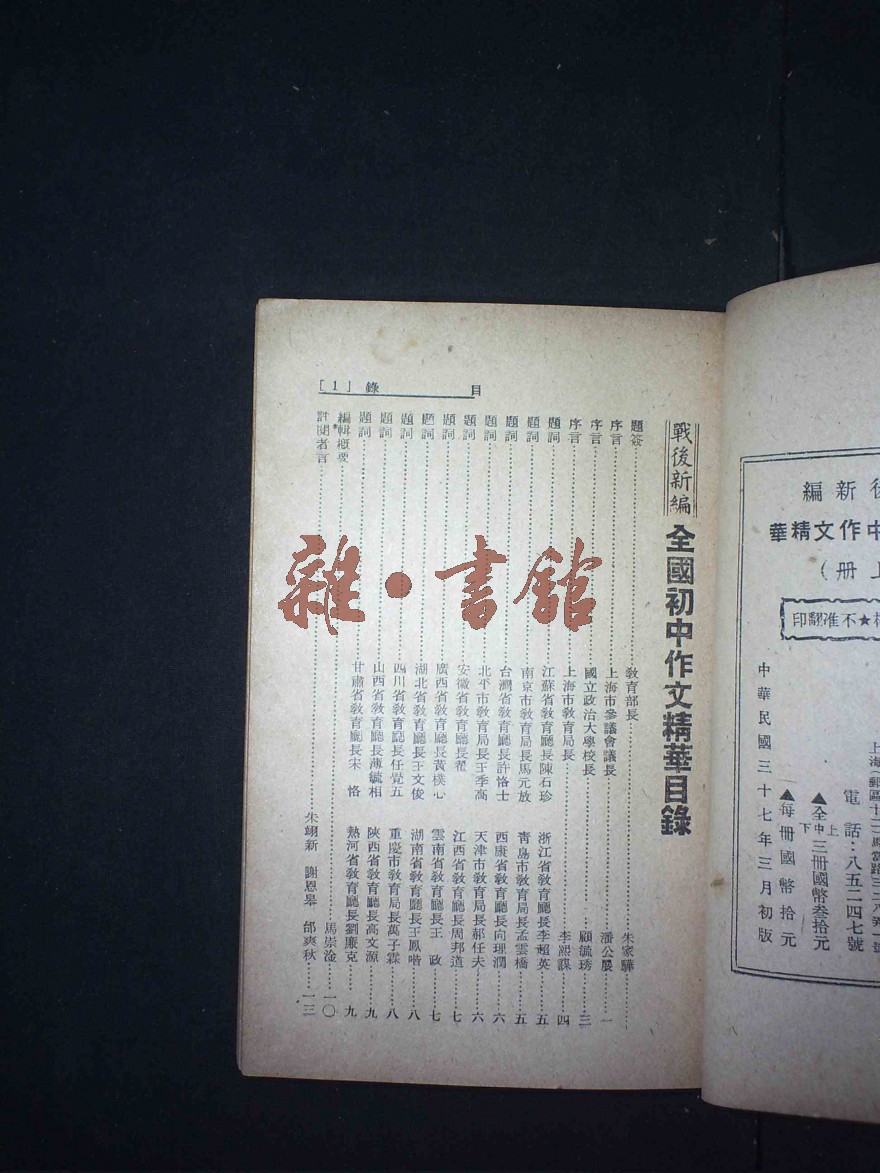 後新編
中作文精華
上册）
★不准翻印
中華民國三十七年三月初版
▲每册國幣拾元
▲全上中下三册國幣叁拾元
電話：八五二四七號
目錄［1］
戰後新編 全國初中作文精華目錄
題簽……教育部長……朱家驊
序言……上海市參議會議長……潘公展……一
序言……國立政治大學校長……顧毓琇……三
序言……上海市教育局長……李熙謀……四
題詞……江蘇省教育廳長陳石珍 浙江省教育廳長李超英……五
題詞……南京市教育局長馬元放 青島市教育局長孟雲橋……五
題詞……台灣省教育廳長許恪士 西康省教育廳長向理潤……六
題詞……北平市教育局長王季高 天津市教育局長郝任夫……六
題詞……安徽省教育廳長翟 江西省教育廳長周邦道……七
題詞……廣西省教育廳長黃樸心 雲南省教育廳長王 政……七
題詞……湖北省教育廳長王文俊 湖南省教育廳長王鳳喈……八
題詞……四川省教育廳長任覺五 重慶市教育局長萬子霖……八
題詞……山西省教育廳長薄毓相 陝西省教育廳長高文源……九
題詞……甘肅省教育廳長宋 恪 熱河省教育廳長劉廉克……九
編輯概要……馬崇淦……一〇
評閱者言……朱翊新 謝恩皋 邰爽秋……一三
雜·書館